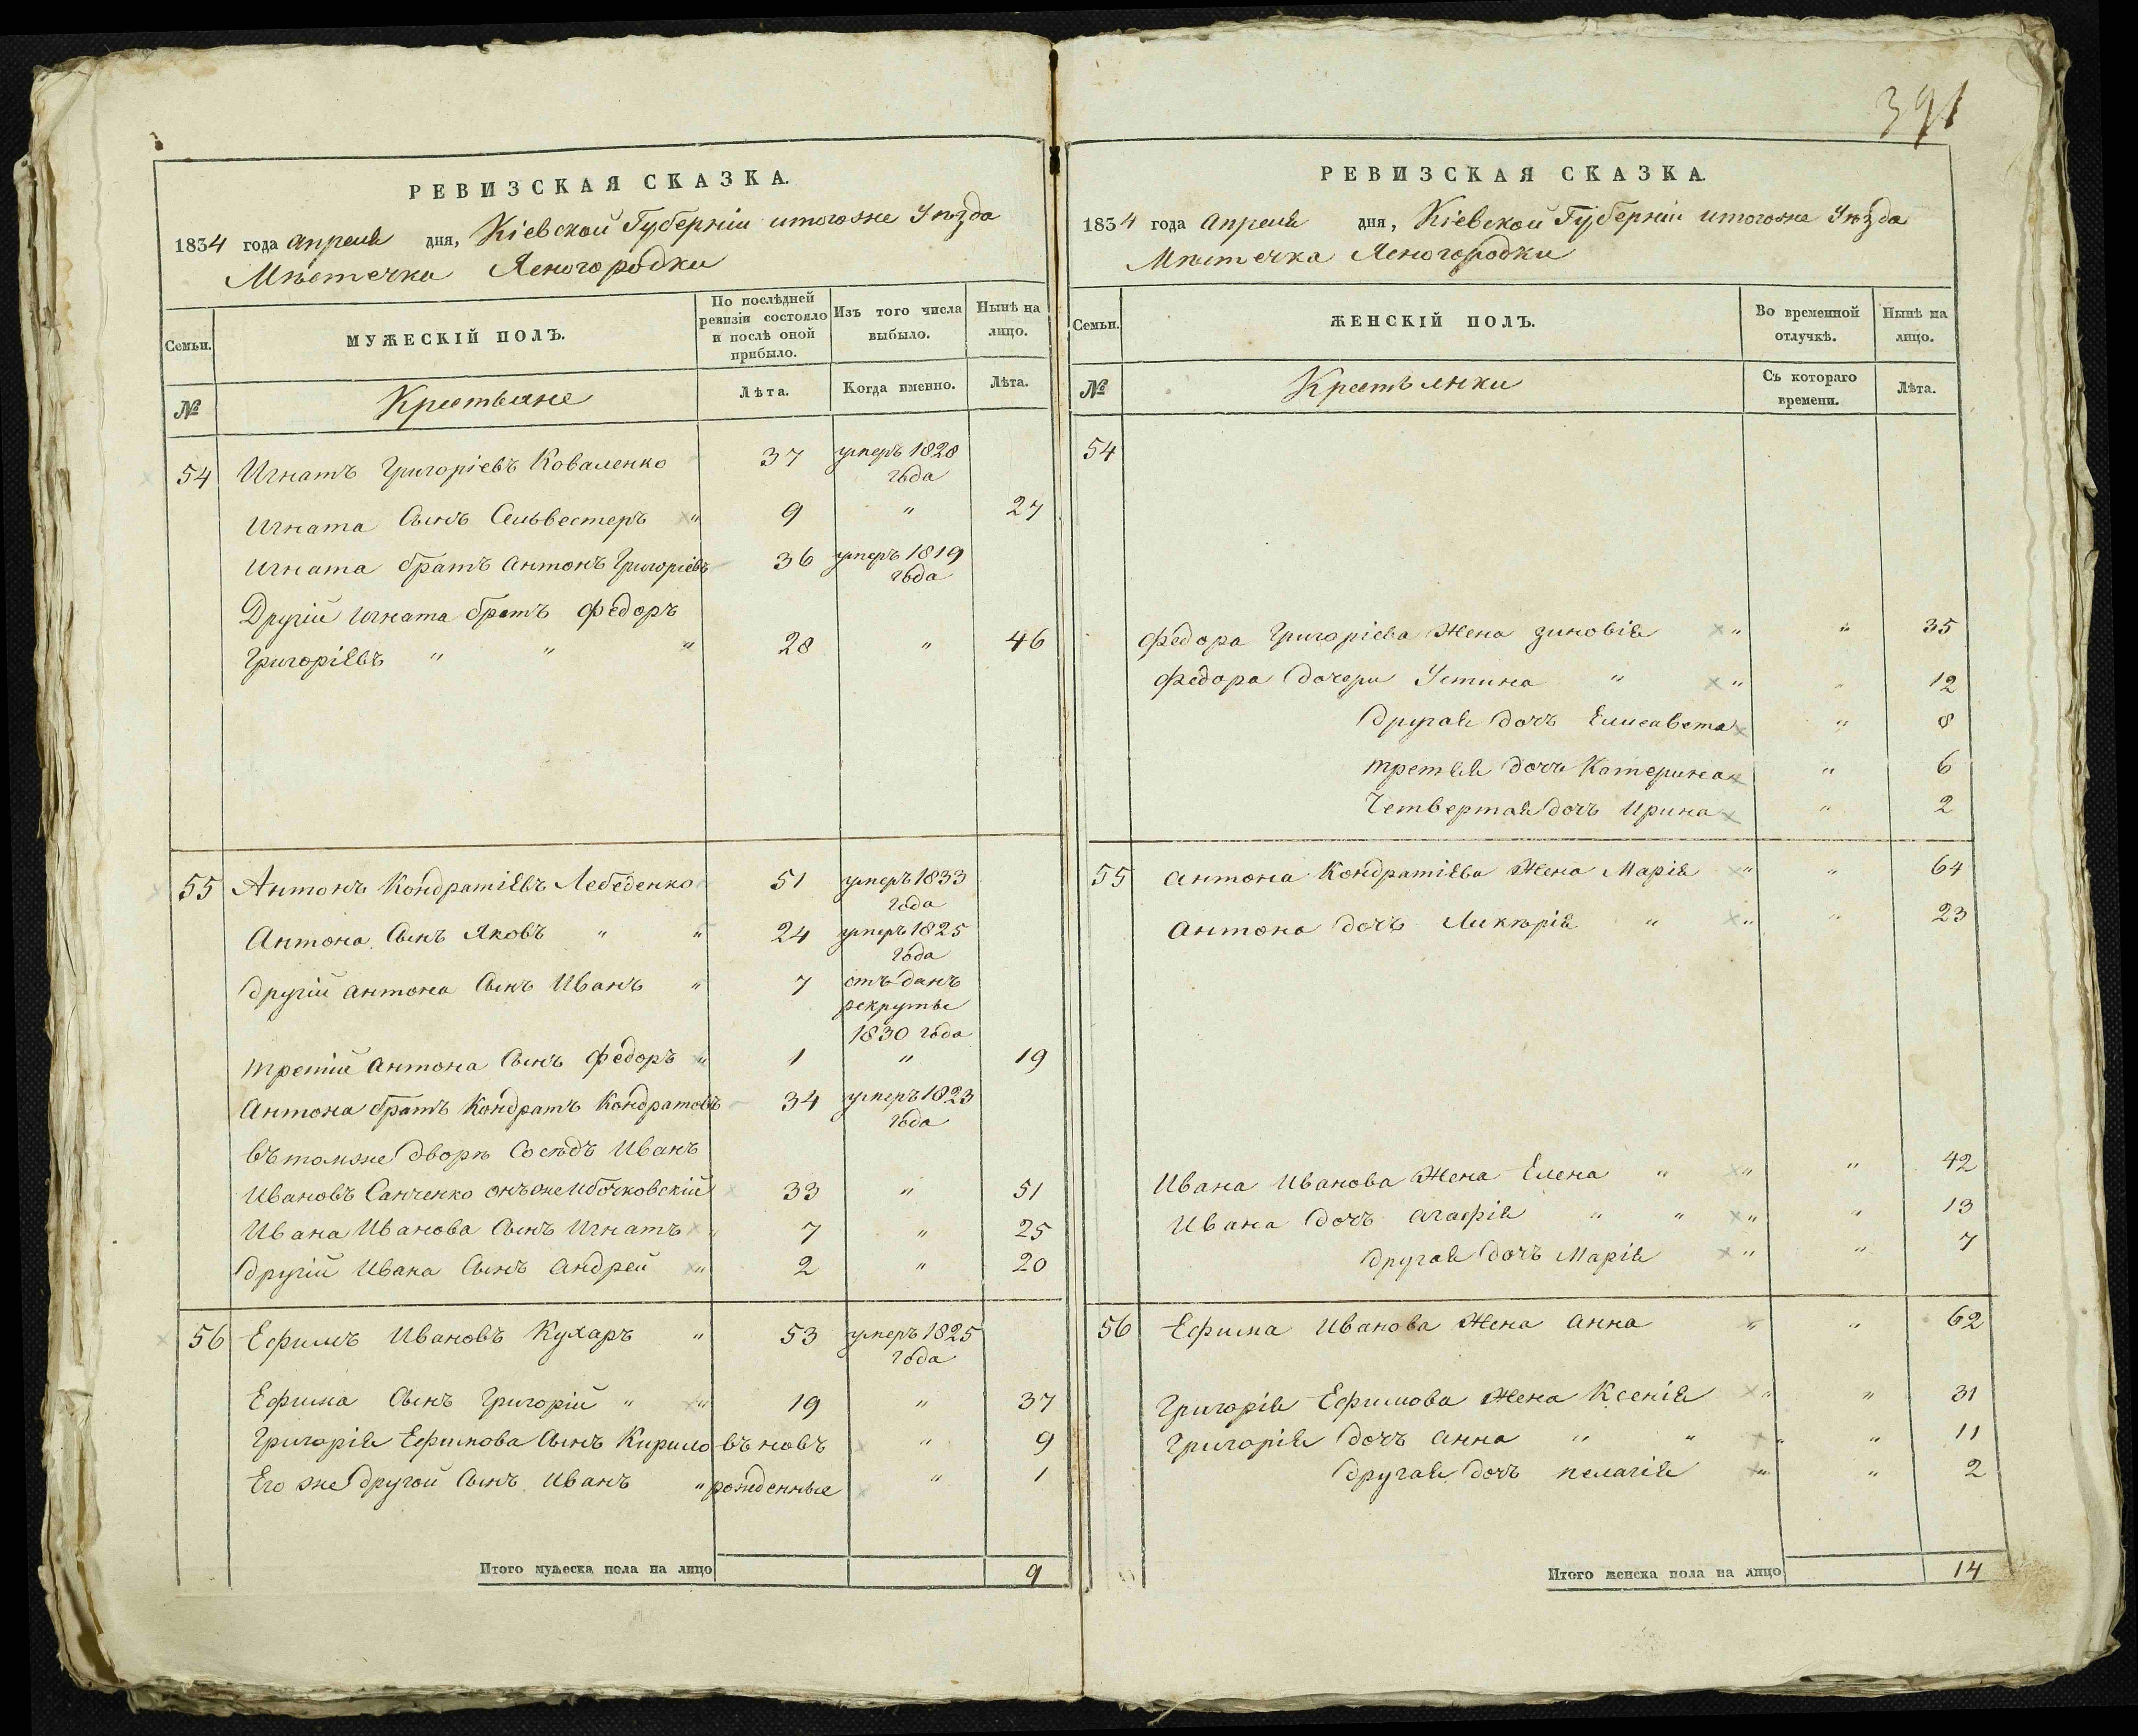 391
РЕВИЗСКАЯ СКАЗКА.
1834 года Апреля дня, Кіевской Губерніи итогоже Уѣзда
Мѣстечка Ясногородки
Семьи.
МУЖЕСКІЙ ПОЛЪ.
По послѣдней ревизіи состояло и послѣ оной прибыло.
Изъ того числа выбыло.
Нынѣ на лицо.
№
Крестьяне
Лѣта.
Когда именно.
Лѣта.
54 Игнатъ Григоріевъ Коваленко 37 умеръ 1828
года
Игната Сынъ Сельвестеръ " 9 " 27
Игната братъ Антонъ Григоріевъ 36 умеръ 1819
года
Другій Игната братъ Федоръ
Григоріевъ " " " 28 " 46
55 Антонъ Кондратіевъ Лебеденко 51 умеръ 1833
года
Антона Сынъ Яковъ " " 24 умеръ 1825
года
другій Антона Сынъ Иванъ " 7 отъданъ
рекруты
1830 года
третій Антона Сынъ Федоръ " 1 " 19
Антона братъ Кондратъ Кондратовъ 34 умеръ 1823
года
вътомже дворѣ Сосѣдъ Иванъ
Ивановъ Санченко онъже Ибочковскій 33 " 51
Ивана Иванова Сынъ Игнатъ " 7 " 25
другій Ивана Сынъ Андрей " 2 " 20
56 Ефимъ Ивановъ Кухаръ " 53 умеръ 1825
года
Ефима Сынъ Григорій " " 19 " 37
Григорія Ефимова Сынъ Кирило въновъ " 9
Его же другой Сынъ Иванъ " рожденные " 1
Итого мужеска пола на лицо 9
РЕВИЗСКАЯ СКАЗКА.
1834 года Апреля дня, Кіевской Губерніи итогоже Уѣзда
Мѣстечка Ясногородки
Семьи.
ЖЕНСКІЙ ПОЛЪ.
Во временной отлучкѣ.
Нынѣ на лицо.
№
Крестьянки
Съ котораго времени.
Лѣта.
54
Федора Григоріева Жена Зиновія " " 35
Федора дочери Устина " " " 12
другая дочъ Елисавета " 8
третья дочъ Катерина " " 6
Четвертая дочъ Ирина " 2
55 Антона Кондратіева Жена Марія " " 64
Антона дочъ Ликѣрія " " " 23
Ивана Иванова Жена Елена " " " 42
Ивана дочъ Агафія " " " " 13
другая дочъ Марія " " 7
56 Ефима Иванова Жена Анна " " 62
Григорія Ефимова Жена Ксенія " " 31
Григорія дочъ Анна " " " " 11
другая дочъ пелагія " " 2
Итого женска пола на лицо 14